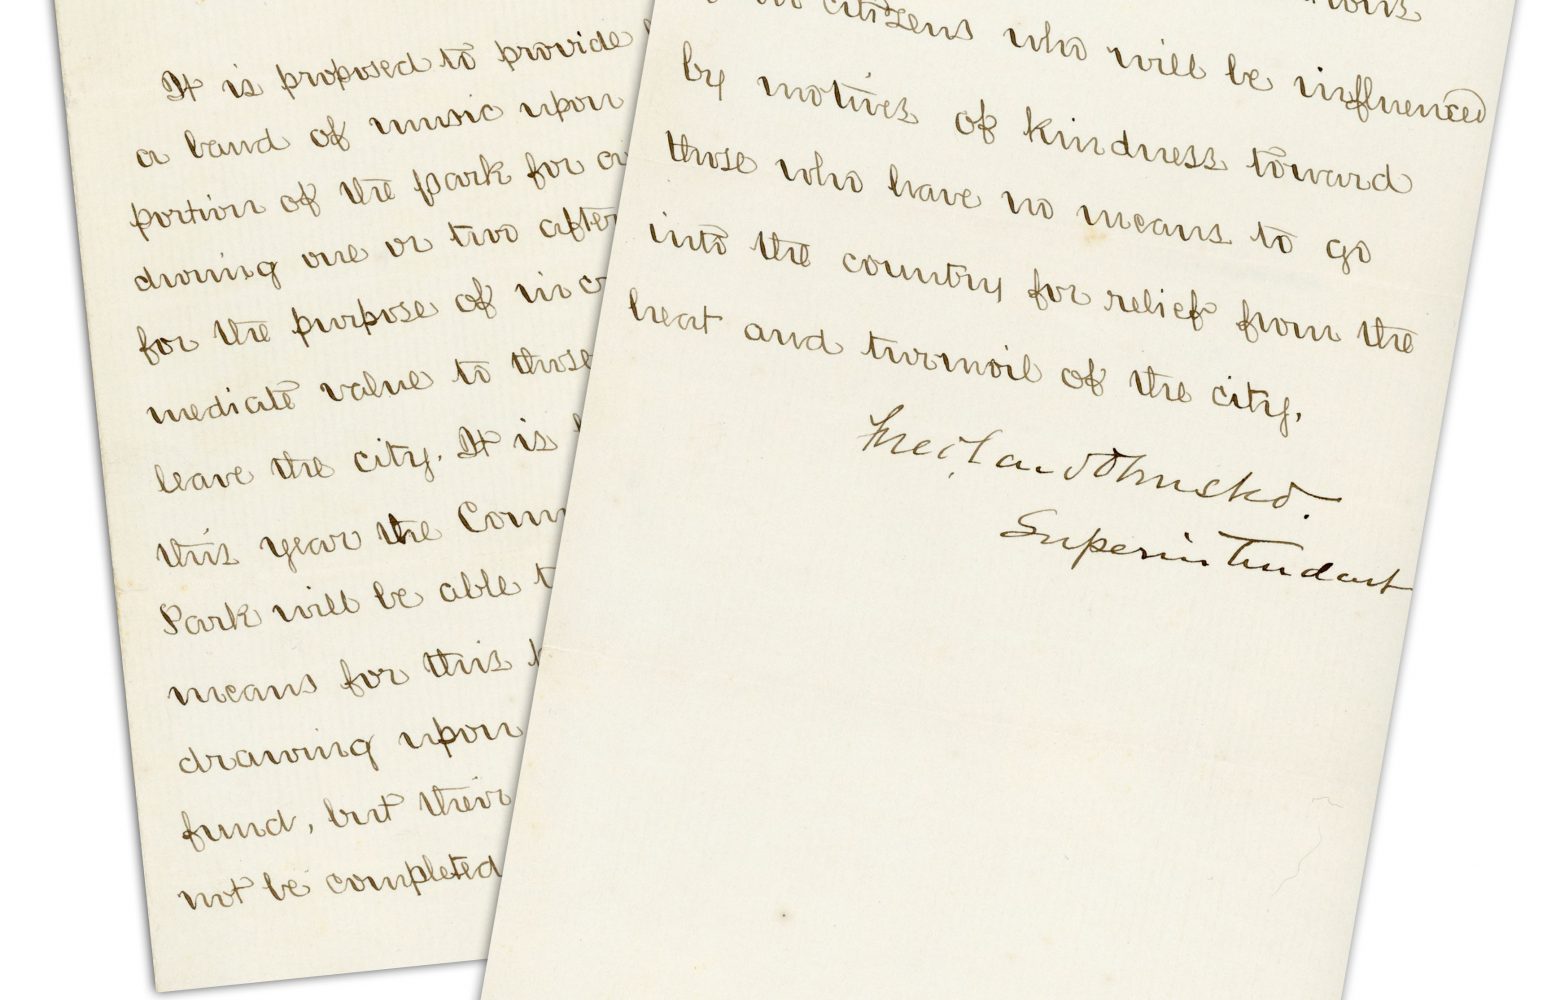 It is proposed to provide
a band of music upon
portion of the park for a
during one or two after
for the purpose of in
mediate value to those
leave the city. It is
this year the Com
Park will be able t
means for this
drawing upon
fund, but their
not be completed
citizens who will be influenced
by motives of kindness toward
those who have no means to go
into the country for relief from the
heat and turmoil of the city.
Fred. Law Olmsted.
Superintendent